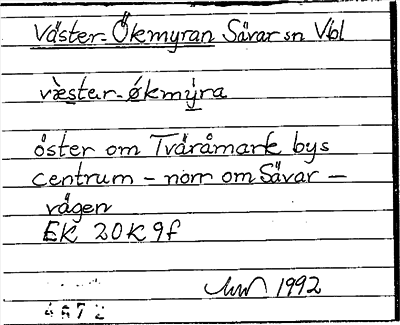 Väster-Ökmyran Sävar sn Vbl
væster-økmýra
öster om Tväråmark bys
centrum - norr om Sävar -
vägen
EK 20K 9f
1992